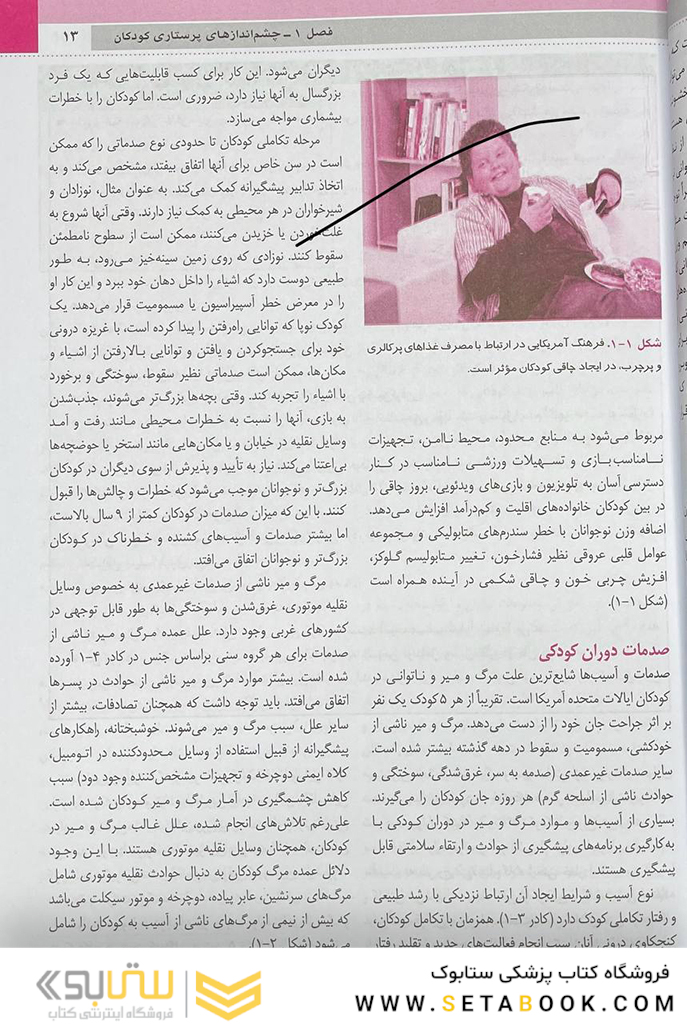 فصل ۱ ـ چشم‌اندازهای پرستاری کودکان
۱۳
شکل ۱-۱. فرهنگ آمریکایی در ارتباط با مصرف غذاهای پرکالری
و پرچرب، در ایجاد چاقی کودکان مؤثر است.
مربوط می‌شود به منابع محدود، محیط ناامن، تجهیزات
نامناسب بازی و تسهیلات ورزشی نامناسب در کنار
دسترسی آسان به تلویزیون و بازی‌های ویدئویی، بروز چاقی را
در بین کودکان خانواده‌های اقلیت و کم‌درآمد افزایش می‌دهد.
اضافه وزن نوجوانان با خطر سندرم‌های متابولیکی و مجموعه
عوامل قلبی عروقی نظیر فشارخون، تغییر متابولیسم گلوکز،
افزیش چربی خون و چاقی شکمی در آینده همراه است
(شکل ۱-۱).
صدمات دوران کودکی
صدمات و آسیب‌ها شایع‌ترین علت مرگ و میر و ناتوانی در
کودکان ایالات متحده آمریکا است. تقریباً از هر ۵ کودک یک نفر
بر اثر جراحت جان خود را از دست می‌دهد. مرگ و میر ناشی از
خودکشی، مسمومیت و سقوط در دهه گذشته بیشتر شده است.
سایر صدمات غیرعمدی (صدمه به سر، غرق‌شدگی، سوختگی و
حوادث ناشی از اسلحه گرم) هر روزه جان کودکان را می‌گیرند.
بسیاری از آسیب‌ها و موارد مرگ و میر در دوران کودکی با
به‌کارگیری برنامه‌های پیشگیری از حوادث و ارتقاء سلامتی قابل
پیشگیری هستند.
نوع آسیب و شرایط ایجاد آن ارتباط نزدیکی با رشد طبیعی
و رفتار تکاملی کودک دارد (کادر ۳-۱). همزمان با تکامل کودکان،
کنجکاوی درونی آنان سبب انجام فعالیت‌های جدید و تقلید رفتار
دیگران می‌شود. این کار برای کسب قابلیت‌هایی که یک فرد
بزرگسال به آنها نیاز دارد، ضروری است. اما کودکان را با خطرات
بیشماری مواجه می‌سازد.
مرحله تکاملی کودکان تا حدودی نوع صدماتی را که ممکن
است در سن خاص برای آنها اتفاق بیفتد، مشخص می‌کند و به
اتخاذ تدابیر پیشگیرانه کمک می‌کند. به عنوان مثال، نوزادان و
شیرخواران در هر محیطی به کمک نیاز دارند. وقتی آنها شروع به
غلت‌خوردن یا خزیدن می‌کنند، ممکن است از سطوح نامطمئن
سقوط کنند. نوزادی که روی زمین سینه‌خیز می‌رود، به طور
طبیعی دوست دارد که اشیاء را داخل دهان خود ببرد و این کار او
را در معرض خطر آسپیراسیون یا مسمومیت قرار می‌دهد. یک
کودک نوپا که توانایی راه‌رفتن را پیدا کرده است، با غریزه درونی
خود برای جستجوکردن و یافتن و توانایی بالارفتن از اشیاء و
مکان‌ها، ممکن است صدماتی نظیر سقوط، سوختگی و برخورد
با اشیاء را تجربه کند. وقتی بچه‌ها بزرگ‌تر می‌شوند، جذب‌شدن
به بازی، آنها را نسبت به خطرات محیطی مانند رفت و آمد
وسایل نقلیه در خیابان و یا مکان‌هایی مانند استخر یا حوضچه‌ها
بی‌اعتنا می‌کند. نیاز به تأیید و پذیرش از سوی دیگران در کودکان
بزرگ‌تر و نوجوانان موجب می‌شود که خطرات و چالش‌ها را قبول
کنند. با این که میزان صدمات در کودکان کمتر از ۹ سال بالاست،
اما بیشتر صدمات و آسیب‌های کشنده و خطرناک در کودکان
بزرگ‌تر و نوجوانان اتفاق می‌افتد.
مرگ و میر ناشی از صدمات غیرعمدی به خصوص وسایل
نقلیه موتوری، غرق‌شدن و سوختگی‌ها به طور قابل توجهی در
کشورهای غربی وجود دارد. علل عمده مرگ و میر ناشی از
صدمات برای هر گروه سنی براساس جنس در کادر ۴-۱ آورده
شده است. بیشتر موارد مرگ و میر ناشی از حوادث در پسرها
اتفاق می‌افتد. باید توجه داشت که همچنان تصادفات، بیشتر از
سایر علل، سبب مرگ و میر می‌شوند. خوشبختانه، راهکارهای
پیشگیرانه از قبیل استفاده از وسایل محدودکننده در اتومبیل،
کلاه ایمنی دوچرخه و تجهیزات مشخص‌کننده وجود دود) سبب
کاهش چشمگیری در آمار مرگ و میر کودکان شده است.
علی‌رغم تلاش‌های انجام شده، علل غالب مرگ و میر در
کودکان، همچنان وسایل نقلیه موتوری هستند. با این وجود
دلائل عمده مرگ کودکان به دنبال حوادث نقلیه موتوری شامل
مرگ‌های سرنشین، عابر پیاده، دوچرخه و موتور سیکلت می‌باشد
که بیش از نیمی از مرگ‌های ناشی از آسیب به کودکان را شامل
می‌شود (شکل ۲-۱).
فروشگاه کتاب پزشکی ستابوک
WWW.SETABOOK.COM
ستابوک
فروشگاه اینترنتی کتاب